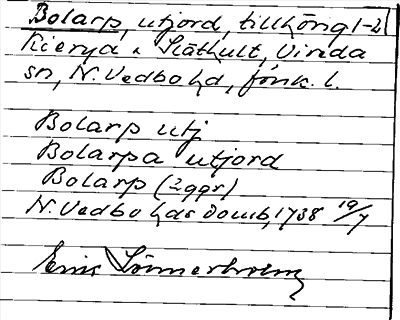 Bolarp, utjord, tillhörig 1-2
Kieryd o. Släthult, Vireda
sn, N. Vedbo hd, Jönk. l.
Bolarp utj
Bolarpa utjord
Bolarp (2 ggr)
N. Vedbo hds domb, 1738 19/7
Eric Sönnerholm